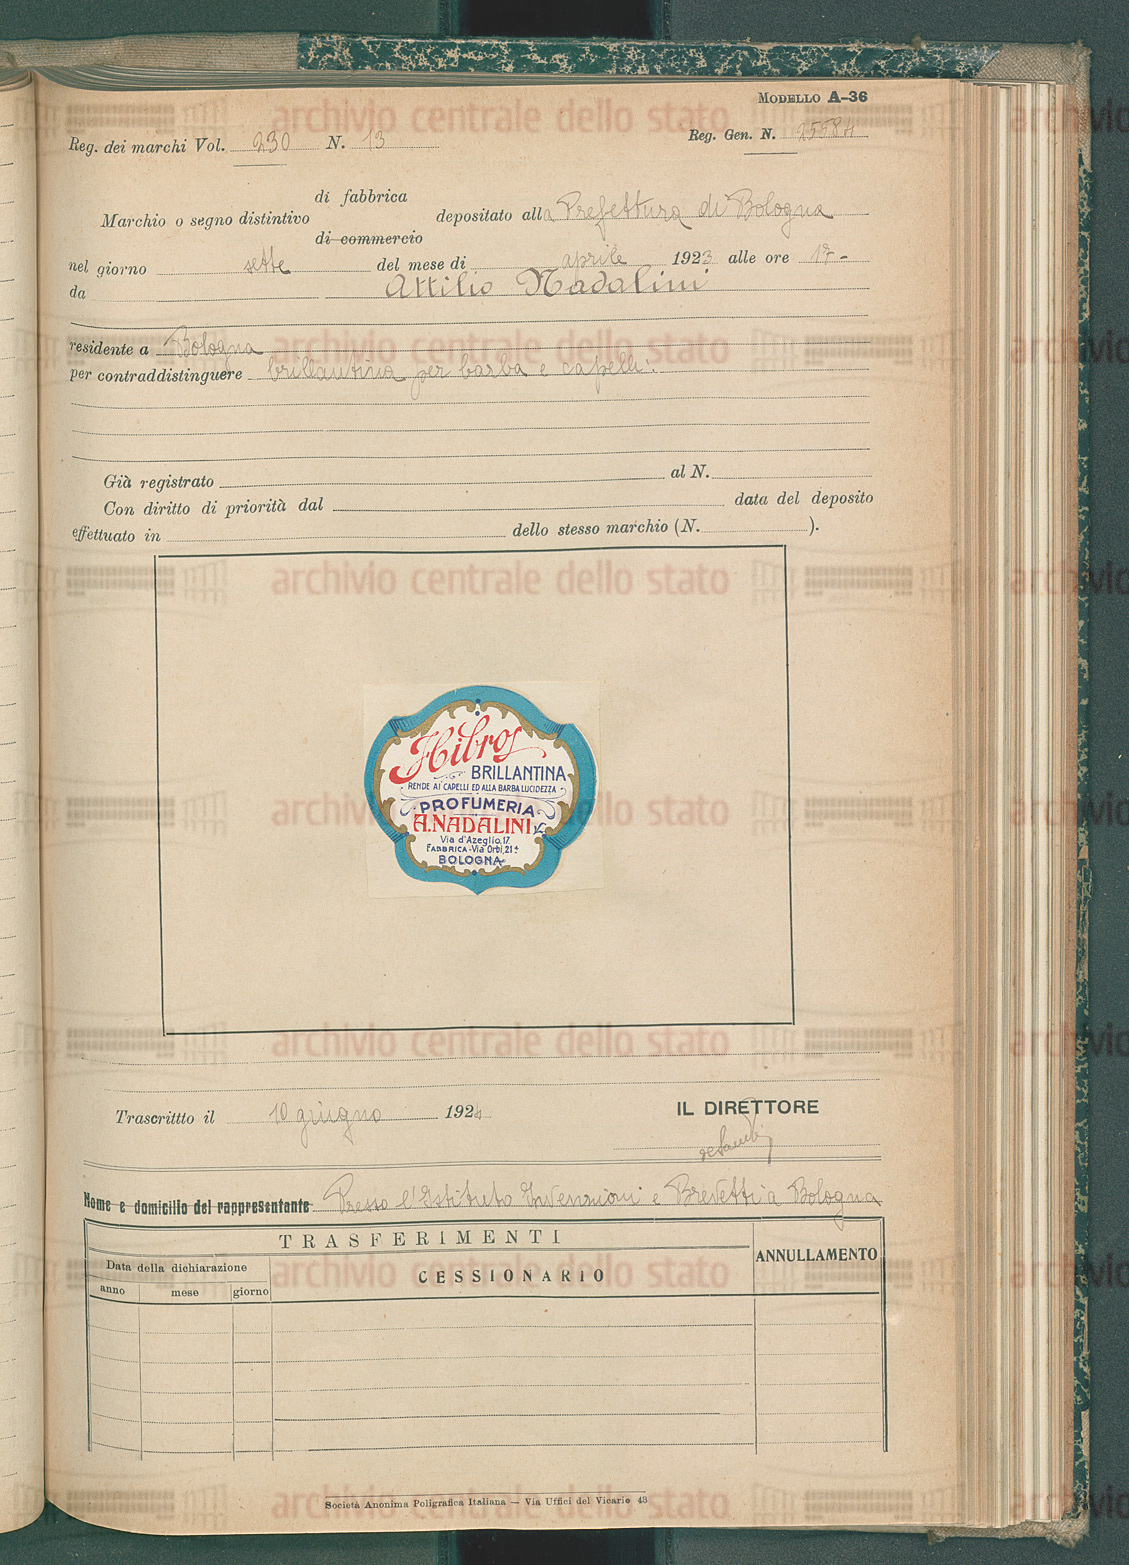 MODELLO A-36
Reg. dei marchi Vol. 230 N. 13
Reg. Gen. N. 25584
di fabbrica
Marchio o segno distintivo depositato alla Prefettura di Bologna
di commercio
nel giorno sette del mese di aprile 1923 alle ore 17-
da Attilio Nadalini
residente a Bologna
per contraddistinguere brillantina per barba e capelli.
Già registrato al N.
Con diritto di priorità dal data del deposito
effettuato in dello stesso marchio (N. ).
Hibros
BRILLANTINA
RENDE AI CAPELLI ED ALLA BARBA LUCIDEZZA
PROFUMERIA
A. NADALINI
Via d'Azeglio, 17
FABBRICA - Via Orbi, 21
BOLOGNA
Trascrittto il 10 giugno 1924
IL DIRETTORE
Nome e domicilio del rappresentante Presso l'Istituto Invenzioni e Brevetti a Bologna
TRASFERIMENTI
ANNULLAMENTO
Data della dichiarazione
CESSIONARIO
anno mese giorno
Società Anonima Poligrafica Italiana — Via Uffici del Vicario 43
archivio centrale dello stato
archivio centrale dello stato
archivio centrale dello stato
archivio centrale dello stato
archivio centrale dello stato
archivio centrale dello stato
archivio centrale dello stato